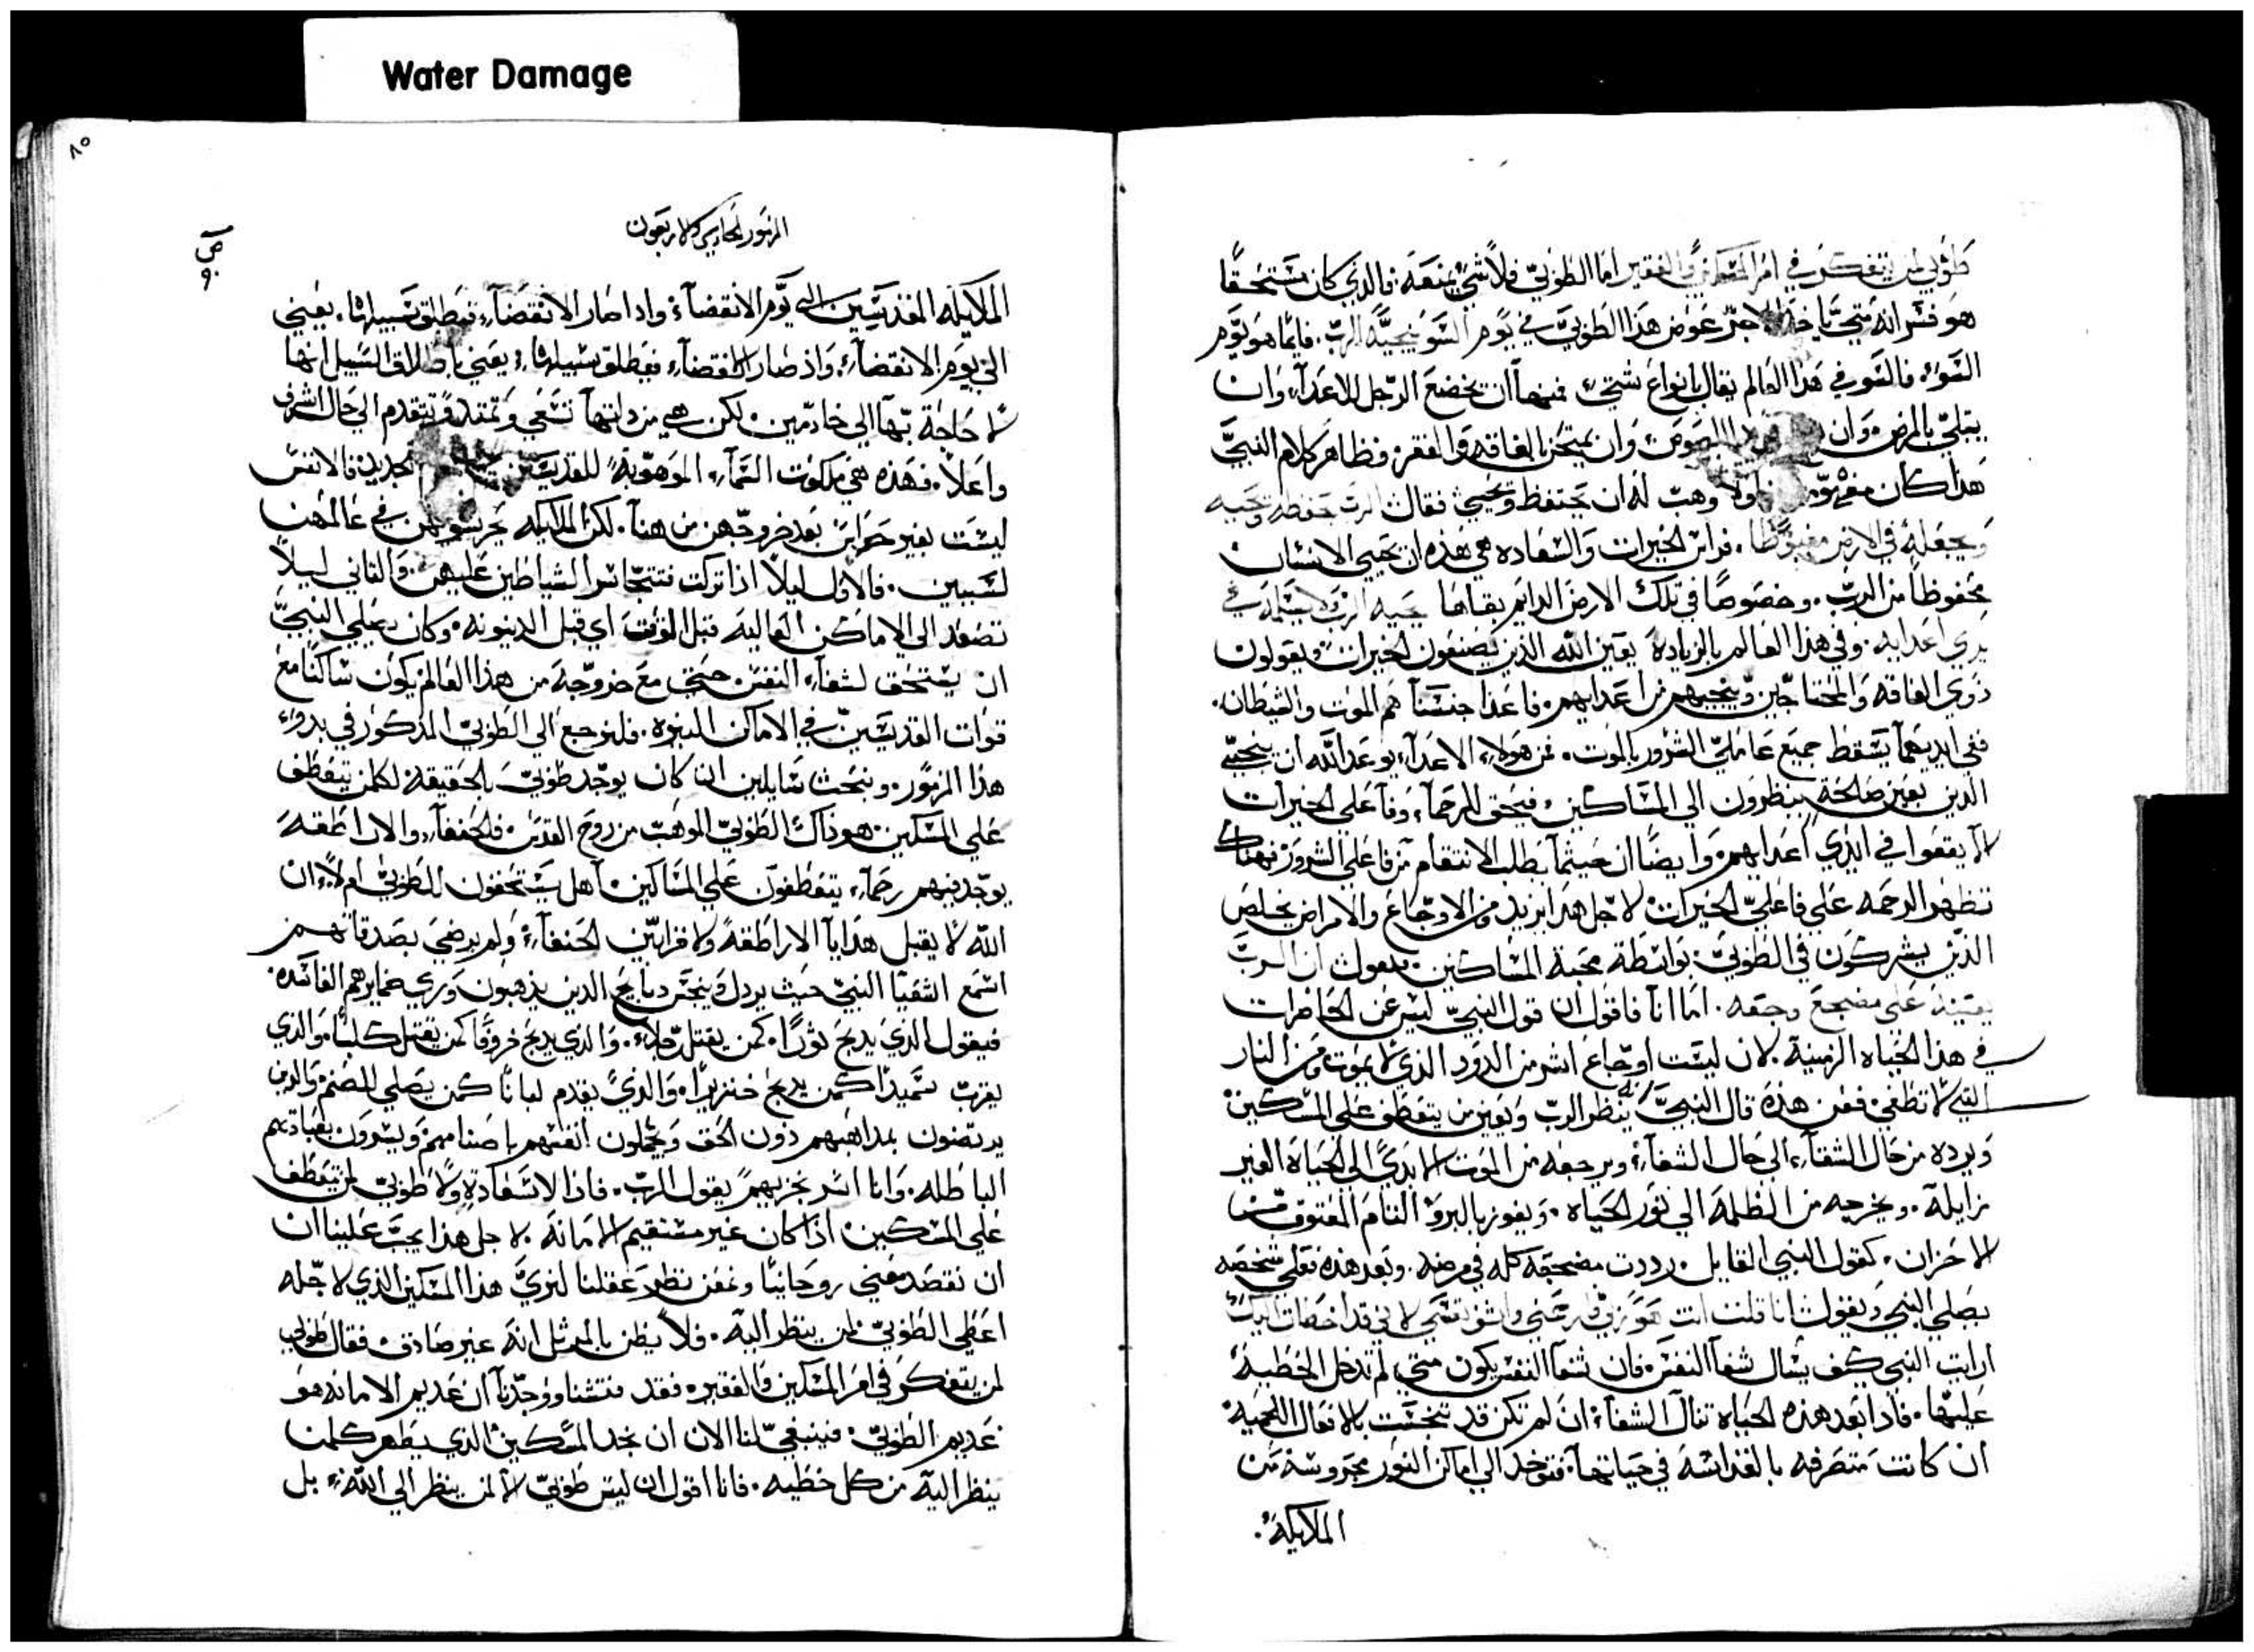 Water Damage
طوبي لمن يتفكر في امر المسكين والفقير اما الطوبيّ فلا شي يمنعه فالذي كان مستحقًا
هو فسر انه متيّ ياخذ الاجر عوض هذا الطوبيّ في يوم السّو ينجيّه الرّب. فايّما هو يوم
السّوء. فالسّو في هذا العالم يقال بانواع شتيّ. فمنها ان يخضع الرّجل للاعدآء وان
يبتليّ بالمرض. وان الهموم، وان يمتحن بالفاقه والفقر. فظاهر كلام النبيّ
هذا كان اولاً وهب له ان يحتفظ ويحييّ فقال الرب يحفظه ويحييه
ويجعله في الارض مغبوطًا. فراس الخيرات والسّعاده هي هذه ان يحيي الانسان
محفوظًا من الربّ. وخصوصًا في تلك الارض الدايم بقاها يحييه الرّب ولا يسلّمه في
يدي اعدايه. وفي هذا العالم بالزياده يعين الله الذين يصنعون الخيرات ويعولون
ذوي الفاقه والمحتاجين وينجيهم من اعدايهم. فاعدا جنسنا هم الموت والشيطان.
ففي ايديهما يسقط جميع عامليّ الشرور بالموت. فمن هولاء الاعدآء يوعد الله ان ينجيّ
الذين بعين صالحة ينظرون الي المسّاكين، فيحق للرحمآء وفاعلي الخيرات
لا يقعوا في ايدي اعدايهم. وايضًا ان حيثما يطلب الانتقام من فاعلي الشرور فهناك
تظهر الرحمه علي فاعليّ الخيرات. لاجل هذا يزيد ومن الاوجاع والامراض يخلص
الذين يشتركون في الطوبيّ. بواسطة محبة المسّاكين. يقول ان الربّ
يعينه علي مضجع وجعه. اما انا فاقول ان قول النبيّ ليس عن الحاضرات
في هذا الحياه الزمنية. لان ليست اوجاع اشر من الدود الذي لا يموت ومن النار
التي لا تطفيّ فعن هذه قال النبيّ ينظر الربّ ويعين من يتعطف علي المسّكين.
ويرده من حال الشقآء الي حال الشفآء، ويرجعه من الموت الابديّ الي الحياة الغير
زايلة. ويخرجه من الظلمة الي نور الحياه. ويفوز بالبرؤ التام المعتوق من
الاحزان. كقول النبي القايل. رددت مضجعه كله في مرضه. وبعد هذه فعلي شخصه
يصلي النبي ويقول انا قلت انت هو ربّي فارحمني واشف نفسي لاني قد اخطات اليك
ارايت النبي كيف يسال شفآ النفس، فان شفآ النفس يكون متيّ لم تدخل الخطية
عليها. فاذا بعد هذه الحياه تنال الشفآء ان لم تكن قد تنجست بالافعال اللحمية
ان كانت متصرفه بالقداسة في حياتها. فتوخد الي اماكن النور محروسة من
الملايكة.
٨٥
المزمور الحادي والاربعون
ص
٩٠
الملايكه القديّسين الي يوم الانقضآء. واذا صار الانقضآء، فيطلق سبيلها. يعني
الي يوم الانقضآء. واذ صار الانقضآء، فيطلق سبيلها، يعني باطلاق السّبيل انها
لا حاجة بها الي خادمين. لكن هي من ذاتها تسعي وتمتد وتتقدم الي حال اشرف
واعلا. فهذه هي ملكوت السّمآء الموهوبة للقديسّين فالانفس
ليست بغير حراس بعد خروجهن من هنا. لكن الملايكه يحرسوهن في عالمهن
لسببين. فالاول ليلاً اذا تركت فتتجاسر الشياطين عليهن. والثاني ليلاً
تصعد الي الاماكن العاليه قبل الوقت اي قبل الدينونه. وكان يصلي النبيّ
ان يستحق لشفآء النفس حتيّ مع خروجه من هذا العالم يكون ساكنًا مع
قوات القديسّين في الاماكن النيره. فلنرجع الي الطوبيّ المذكور في بدو
هذا المزمور. ونبحث سايلين ان كان يوجد طوبيّ بالحقيقه لكلمن يتعطف
علي المسّكين. هو ذاك الطوبيّ الموهب من روح القدس. فالحنفآء والاراطقه
يوجد فيهم رحمآء يتعطفون علي المسّاكين. هل يستحقون للطوبيّ ام لا. ان
الله لا يقبل هدايا الاراطقه ولا قرابيّن الحنفآء، ولم يرضيَ بصدقاتهم
اسّمع اشعيا النبيّ حيث يردل وينجس دبايح الذين يذهبون وري ضمايرهم الفاسّده.
فيقول الذي يدبح ثورًا. كمن يقتل رجلاً. والذي يدبح خروفًا كمن يقتل كلبًا. والذي
يقرب سّميدًا كمن يدبح خنزيرًا. والذي يقدم لبانًا كمن يصلي للصنم والذين
يرتضون بمداهبهم دون الحق ويجملون انفسهم باصنامهم ويسرون بعبادتهم
الباطله. وانا اسر بخزيهم يقول الربّ. فاذا لا سّعادة ولا طوبيّ لمن يتعطف
علي المسكين. اذا كان غير مستقيم الامانه. لاجل هذا يجب علينا ان
ان نقصد معني روحانيًا ونمعن نظر عقلنا لنريّ هذا المسكين الذي لاجله
اعطي الطوبيّ لمن ينظر اليه. فلا يظن بالمرتل انه غير صادق. فقال طوبي
لمن يتفكر في امر المسكين والفقير. فقد فتشنا ووجدنا ان عديم الامانه هو
عديم الطوبيّ. فينبغيّ لنا الان ان نجد المسّكين الذي يطهر كلمن
ينظر اليه من كل خطيه. فانا اقول ان ليس طوبيّ الا لمن ينظر الي الله، بل